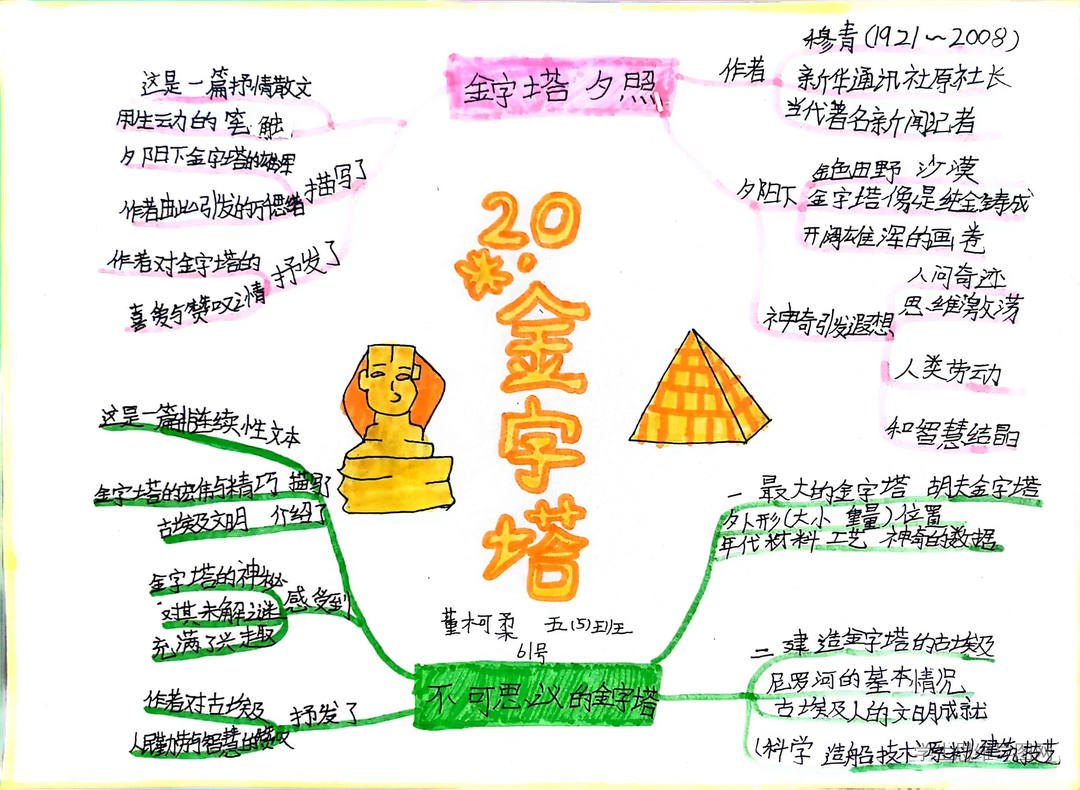 金字塔夕照
作者
穆青(1921～2008)
新华通讯社原社长
当代著名新闻记者
夕阳下
金色田野 沙漠
金字塔像是纯金铸成
开阔雄浑的画卷
神奇引发遐想
人间奇迹
思维激荡
人类劳动
和智慧结晶
这是一篇抒情散文
用生动的笔触
夕阳下金字塔的
作者由此引发的所思绪
描写了
作者对金字塔的
喜爱与赞叹之情
抒发了
20.金字塔
董柯柔 五(5)班
61号
不可思议的金字塔
这是一篇非连续性文本
金字塔的宏伟与精巧 描写了
古埃及文明 介绍了
金字塔的神秘
对其未解之谜
充满了兴趣
感受到
作者对古埃及
人民勤劳与智慧的赞叹
抒发了
一 最大的金字塔 胡夫金字塔
外形(大小 重量)位置
年代材料工艺 神奇的数据
二 建造金字塔的古埃及
尼罗河的基本情况
古埃及人的文明成就
(科学 造船技术 建筑技艺